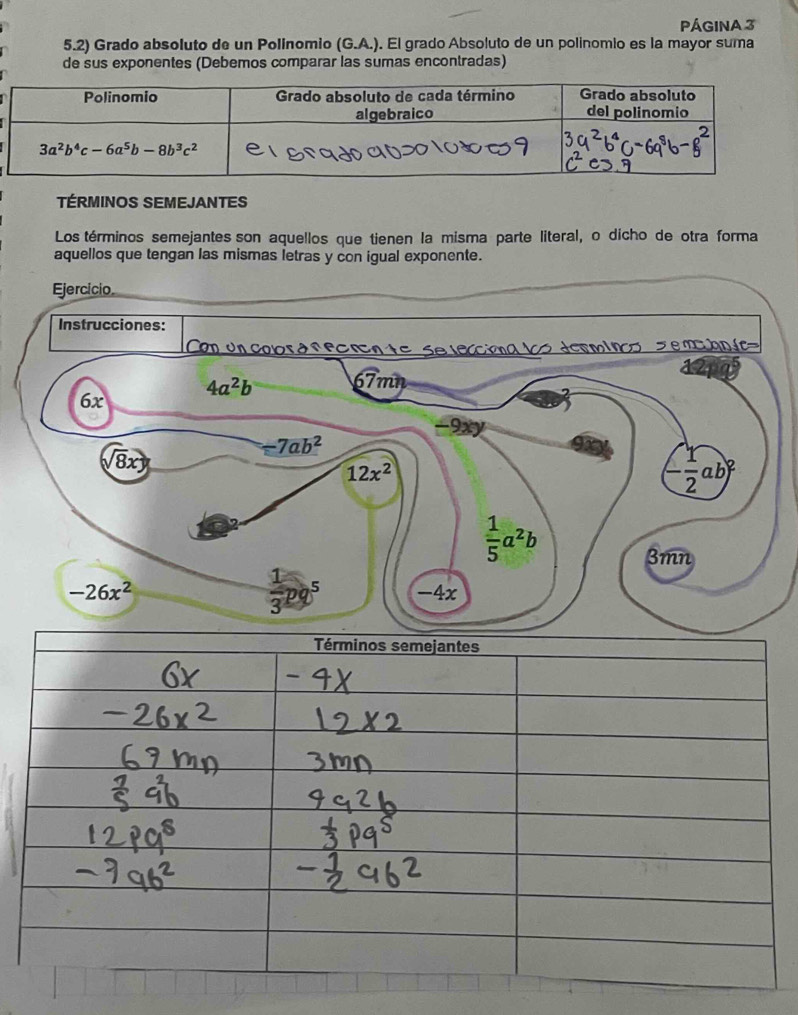 PÁGINA 3
5.2) Grado absoluto de un Polinomio (G.A.). El grado Absoluto de un polinomio es la mayor suma
de sus exponentes (Debemos comparar las sumas encontradas)
Polinomio
Grado absoluto de cada término
algebraico
Grado absoluto
del polinomio
3a²b⁴c − 6a⁵b − 8b³c²
el grado absoluto es 9
3a²b⁴c-6a⁵b-8²
c² es 9
TÉRMINOS SEMEJANTES
Los términos semejantes son aquellos que tienen la misma parte literal, o dicho de otra forma
aquellos que tengan las mismas letras y con igual exponente.
Ejercicio.
Instrucciones:
Con un color selecciona los terminos semejantes
12pq⁵
4a²b
67mn
6x
−9xy
9xy
−7ab²
√8xy
12x²
−1/2 ab²
1/5 a²b
3mn
−26x²
1/3 pq⁵
−4x
Términos semejantes
6x
-4x
-26x2
12x2
67mn
3mn
a²b
4a2b
12pq⁵
1/3 pq⁵
-7ab²
-1/2 ab2